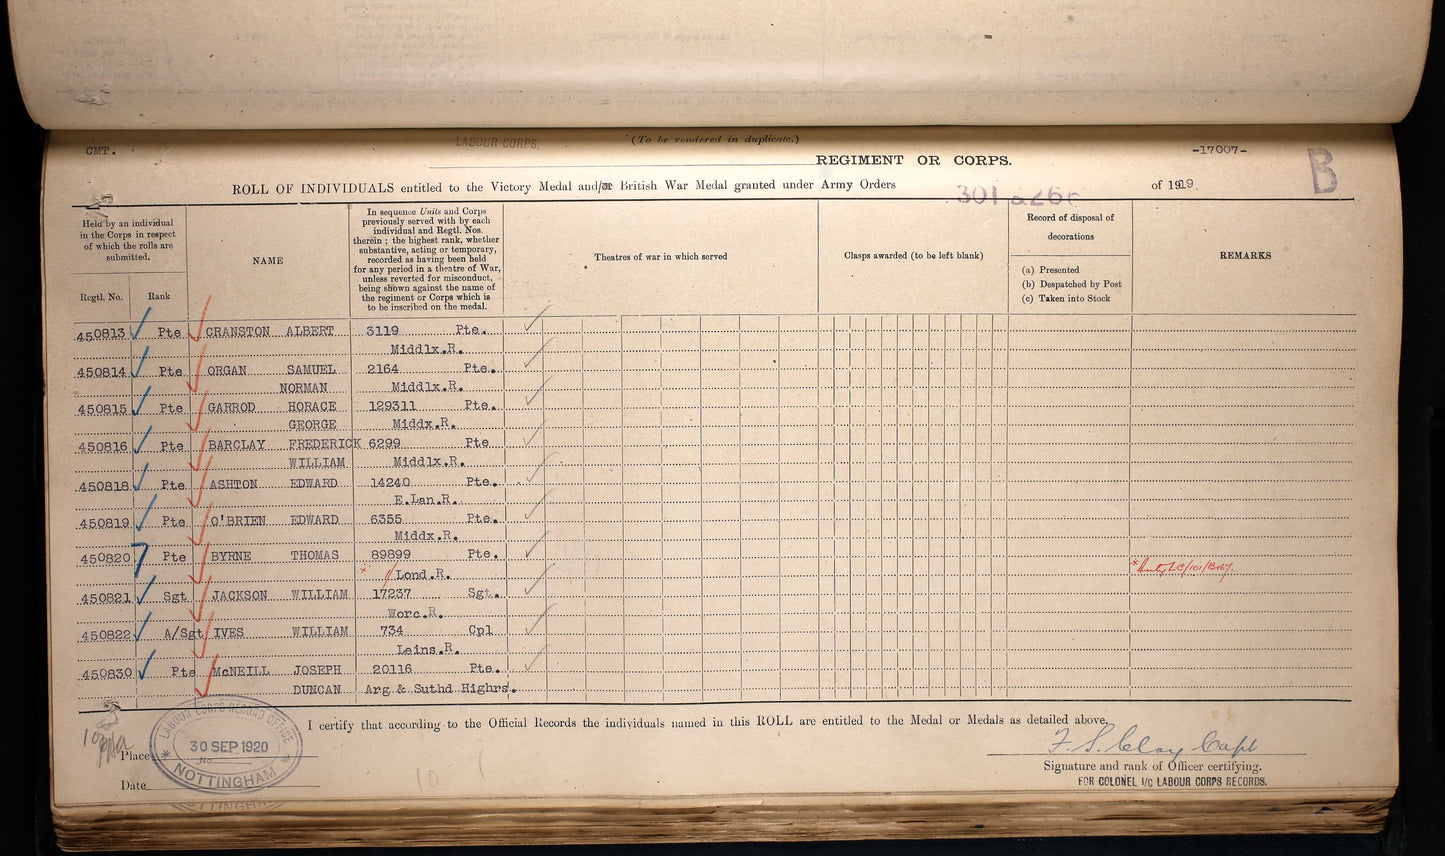 LABOUR CORPS. (To be rendered in duplicate.)
CMT. REGIMENT OR CORPS. -17007- B
ROLL OF INDIVIDUALS entitled to the Victory Medal and/or British War Medal granted under Army Orders 301 & 266 of 1919.
Held by an individual in the Corps in respect of which the rolls are submitted.
Regtl. No. Rank
NAME
In sequence Units and Corps
previously served with by each
individual and Regtl. Nos.
therein ; the highest rank, whether
substantive, acting or temporary,
recorded as having been held
for any period in a theatre of War,
unless reverted for misconduct,
being shown against the name of
the regiment or Corps which is
to be inscribed on the medal.
Theatres of war in which served
Clasps awarded (to be left blank)
Record of disposal of
decorations
(a) Presented
(b) Despatched by Post
(c) Taken into Stock
REMARKS
450813 Pte CRANSTON ALBERT 3119 Pte.
Middlx.R.
450814 Pte ORGAN SAMUEL 2164 Pte.
NORMAN Middlx.R.
450815 Pte GARROD HORACE 129311 Pte.
GEORGE Middx.R.
450816 Pte BARCLAY FREDERICK 6299 Pte
WILLIAM Middlx.R.
450818 Pte ASHTON EDWARD 14240 Pte.
E.Lan.R.
450819 Pte O'BRIEN EDWARD 6355 Pte.
Middx.R.
450820 Pte BYRNE THOMAS 89899 Pte.
Lond.R.
450821 Sgt JACKSON WILLIAM 17237 Sgt.
Worc.R.
450822 A/Sgt IVES WILLIAM 734 Cpl
Leins.R.
450830 Pte McNEILL JOSEPH 20116 Pte.
DUNCAN Arg & Suthd Highrs.
I certify that according to the Official Records the individuals named in this ROLL are entitled to the Medal or Medals as detailed above.
LABOUR CORPS RECORD OFFICE
30 SEP 1920
No.
NOTTINGHAM
Place
Date
F. S. Clay Capt
Signature and rank of Officer certifying.
FOR COLONEL I/C LABOUR CORPS RECORDS.